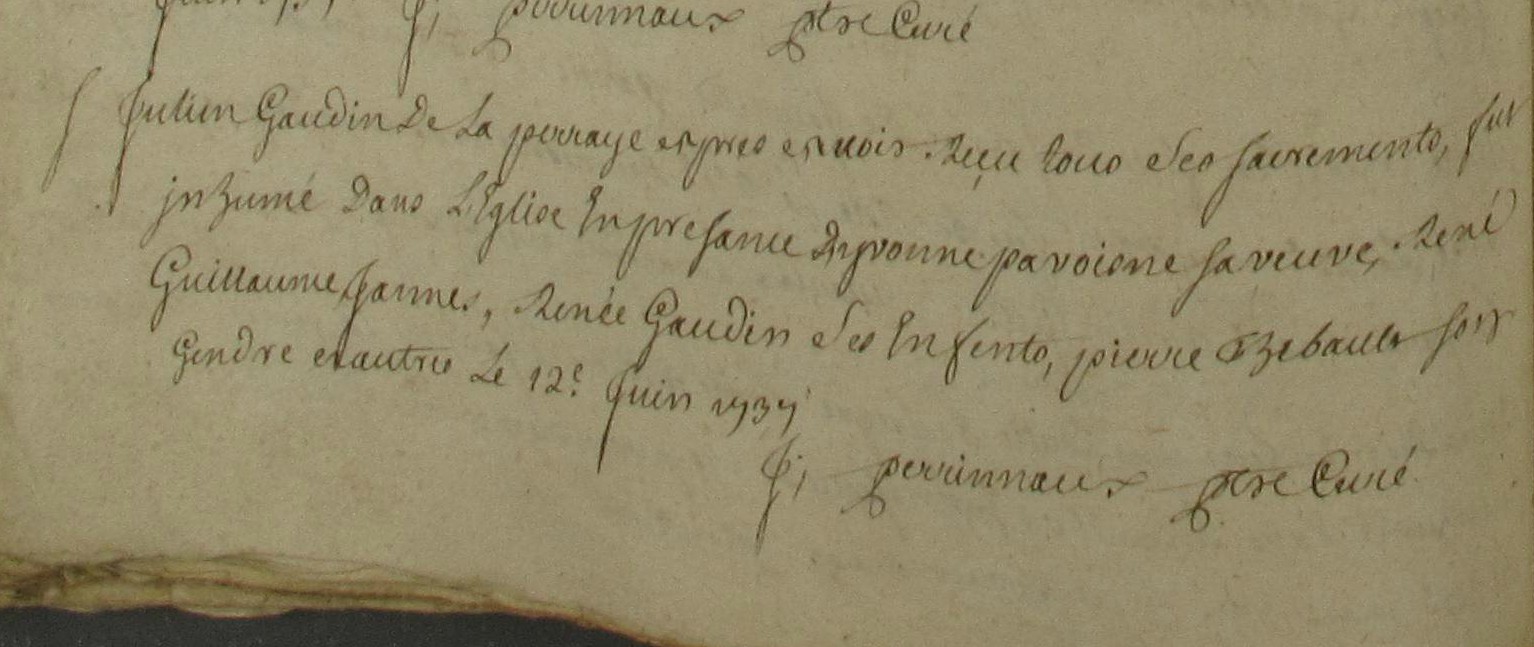 perrinnaux ptre Curé
Julien Gaudin De La perraye apres avoir Reçu tous Ses sacrements, fut
inhumé Dans L'Eglise En presance Dyvonne pavoisne sa veuve, René
Guillaume, Jannes, Renée Gaudin Ses Enfents, pierre Thebault son
Gendre et autres Le 12e Juin 1737
J; perrinnaux ptre Curé